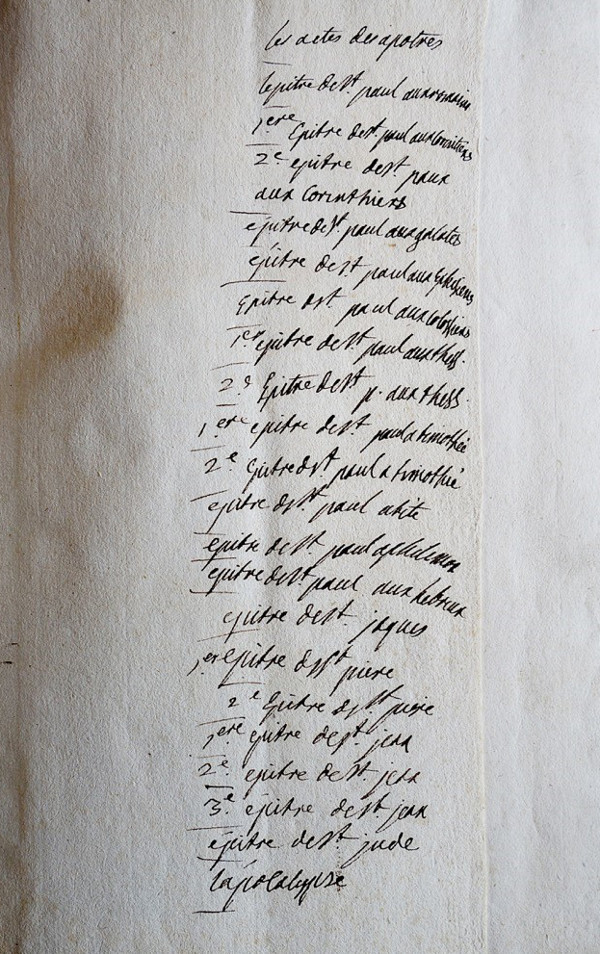 les actes des apotres
lepitre de st. paul aux romains
1ere Epitre de st. paul aux Corinthiens
2e epitre de st. paux
aux Corinthiens
epitre de st. paul aux galates
épitre de st. paul aux Ephesiens
Epitre de st. paul aux colossiens
1ere epitre de st. paul aux thess.
2e Epitre de st. p. aux thess.
1ere epitre de st. paul a timothée
2e Epitre de st. paul a timothée
epitre de st. paul a tite
epitre de st. paul a philemon
epitre de st. paul aux hebreux
epitre de st. jaques
1ere epitre de st. piere
2e Epitre de st. piere
1ere epitre de st. jean
2e. epitre de st. jean
3e. epitre de st. jean
epitre de st. jude
lapocalypse